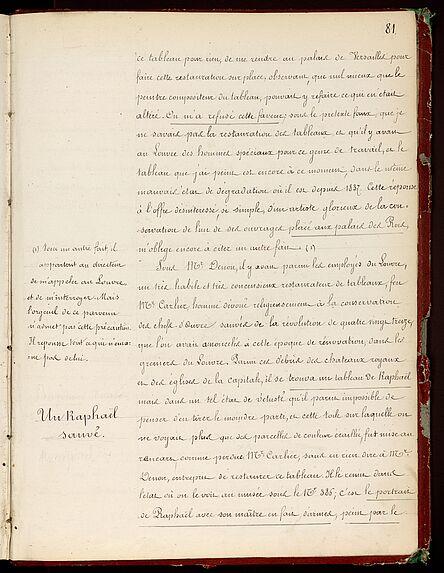 81
ce tableau pour rien, de me rendre au palais de Versailles pour
faire cette restauration sur place, observant, que nul mieux que le
peintre compositeur du tableau, pouvait y refaire ce qui en était
altéré. On m'a refusé cette faveur, sous le prétexte faux, que je
ne savais pas la restauration des tableaux et qu'il y avait
au Louvre des hommes spéciaux pour ce genre de travail, et le
tableau que j'ai peint est encore à ce moment, dans le même
mauvais état de dégradation où il est depuis 1837. Cette réponse
à l'offre désintéressé si simple, d'un artiste glorieux de la con-
servation de l'un de ses ouvrages placé aux palais des Rois,
m'oblige encore à citer un autre fait. (1)
(1) Sous un autre fait, il
appartient au directeur
de m'appeler au Louvre,
et de m'interroger. Mais
l'orgueil de ce parvenu
n'admet pas cette précaution.
Il repousse tout ce qui n'éma-
ne pas de lui.
Sous Mr. Denon, il y avait parmi les employés du Louvre,
un très habile et très consciencieux restaurateur de tableaux, feu
Mr. Carlier, homme dévoué religieusement à la conservation
des chefs d'œuvre sauvés de la révolution de quatre vingt treize,
que l'on avait amoncelés à cette époque de rénovation, dans les
greniers du Louvre. Parmi ces débris des chateaux royaux
et des églises de la capitale, il se trouva un tableau de Raphaël
mais dans un tel état de vétusté qu'il parut impossible de
penser d'en tirer le moindre parti, et cette toile sur laquelle on
ne voyait plus que des parcelles de couleur écaillée, fut mise au
rancart, comme perdue. Mr. Carlier, sans en rien dire à Mr.
Denon, entreprit de restaurer ce tableau. Il le remit dans
l'état où on le voit au musée sous le No. 386; c'est le portrait
de Raphaël avec son maître en fait d'armes, peint par le
Un Raphaël
sauvé.